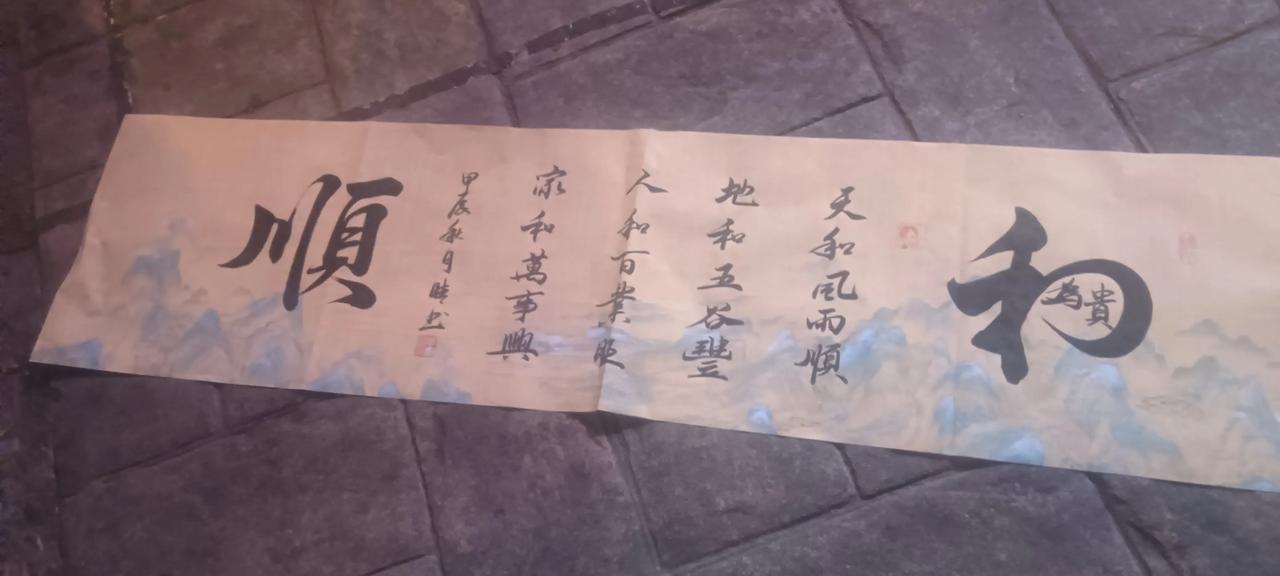 和
為貴
天和風雨順
地和五谷豐
人和百業興
家和萬事興
甲辰秋月 書
順